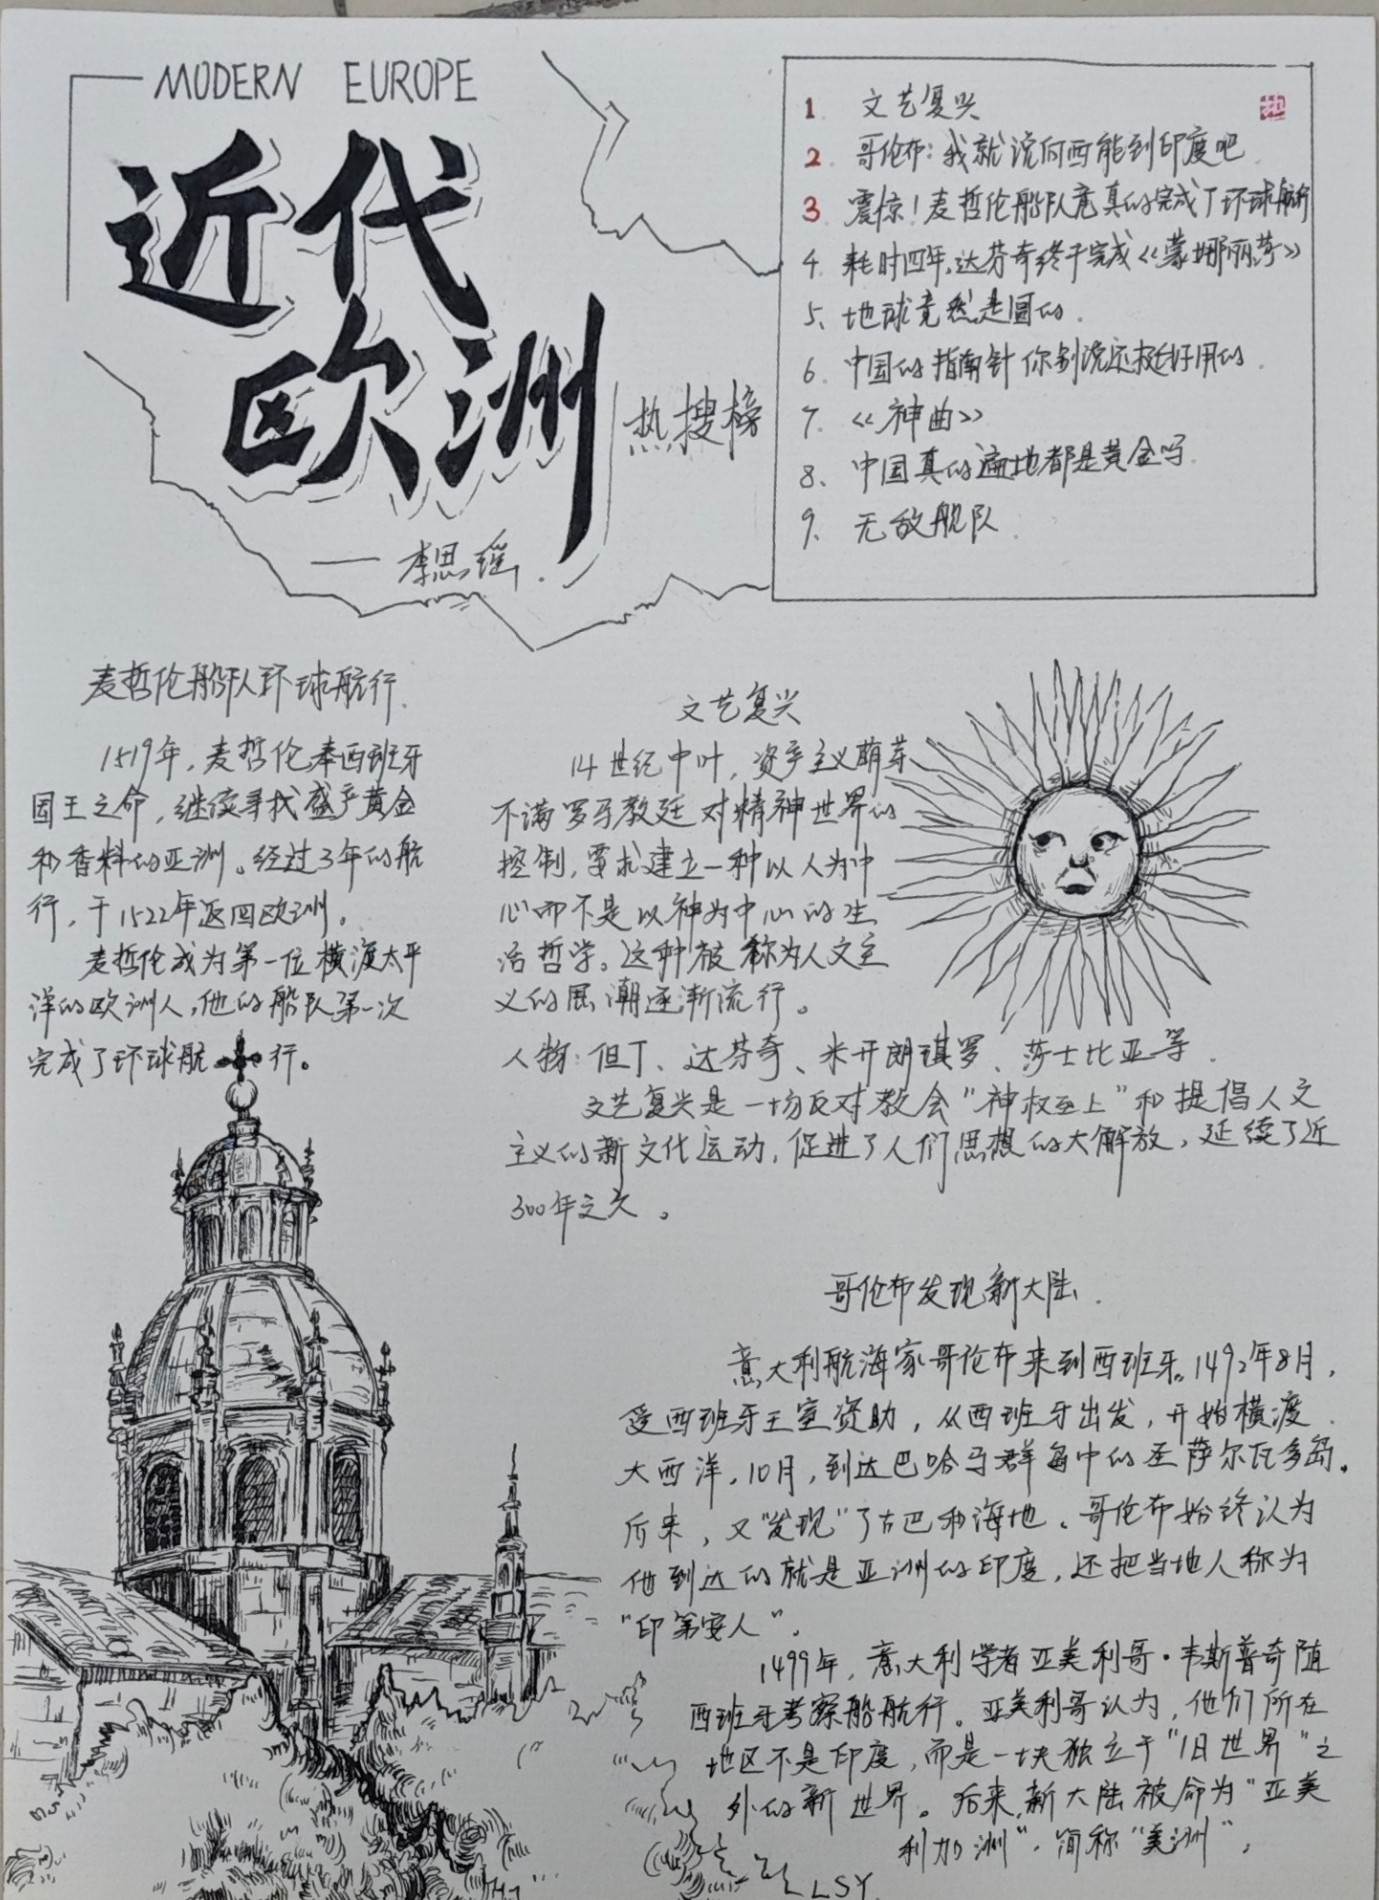 MODERN EUROPE
近代
欧洲
热搜榜
——李思瑶.
1 文艺复兴
2 哥伦布：我就说向西能到印度吧
3 震惊！麦哲伦船队竟真的完成了环球航行
4. 耗时四年，达芬奇终于完成《蒙娜丽莎》
5、地球竟然是圆的.
6. 中国的指南针 你别说还挺好用的.
7. 《神曲》
8、中国真的遍地都是黄金吗.
9. 无敌舰队.
麦哲伦船队环球航行.
1519年，麦哲伦奉西班牙
国王之命，继续寻找盛产黄金
和香料的亚洲。经过3年的航
行，于1522年返回欧洲。
麦哲伦成为第一位横渡太平
洋的欧洲人，他的船队第一次
完成了环球航行。
文艺复兴
14世纪中叶，资产主义萌芽
不满罗马教廷对精神世界的
控制，要求建立一种以人为中
心而不是以神为中心的生
活哲学。这种被称为人文主
义的风潮逐渐流行。
人物：但丁、达芬奇、米开朗琪罗、莎士比亚等.
文艺复兴是一场反对教会“神权至上”和提倡人文
主义的新文化运动，促进了人们思想的大解放，延续了近
300年之久。
哥伦布发现新大陆.
意大利航海家哥伦布来到西班牙。1492年8月，
受西班牙王室资助，从西班牙出发，开始横渡
大西洋，10月，到达巴哈马群岛中的圣萨尔瓦多岛。
后来，又“发现”了古巴和海地。哥伦布始终认为
他到达的就是亚洲的印度，还把当地人称为
“印第安人”。
1499年，意大利学者亚美利哥·韦斯普奇随
西班牙考察船航行。亚美利哥认为，他们所在
地区不是印度，而是一块独立于“旧世界”之
外的新世界。后来，新大陆被命为“亚美
利加洲”，简称“美洲”。
LSY